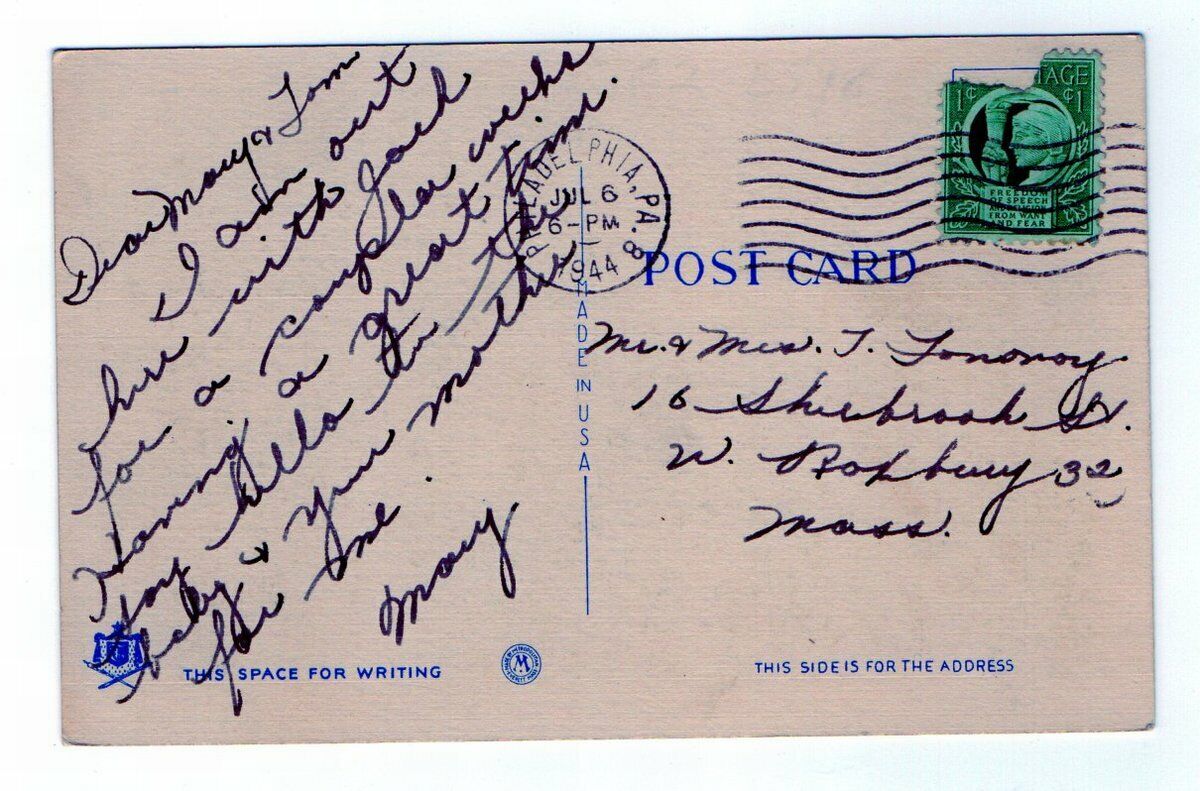 Dear Mary & Tom
I am out
here with Jack
for a couple of weeks
Having a great time.
Say hello to the
baby & your mother
for me.
Mary
THIS SPACE FOR WRITING
PHILADELPHIA, PA. 8
JUL 6
6-PM
1944
TAGE
1¢ ¢1
FREEDOM
OF SPEECH
AND RELIGION
FROM WANT
AND FEAR
POST CARD
MADE IN USA
Mr. & Mrs. T.
16 Sherbrook St.
W. Roxbury 32
Mass.
M
THIS SIDE IS FOR THE ADDRESS